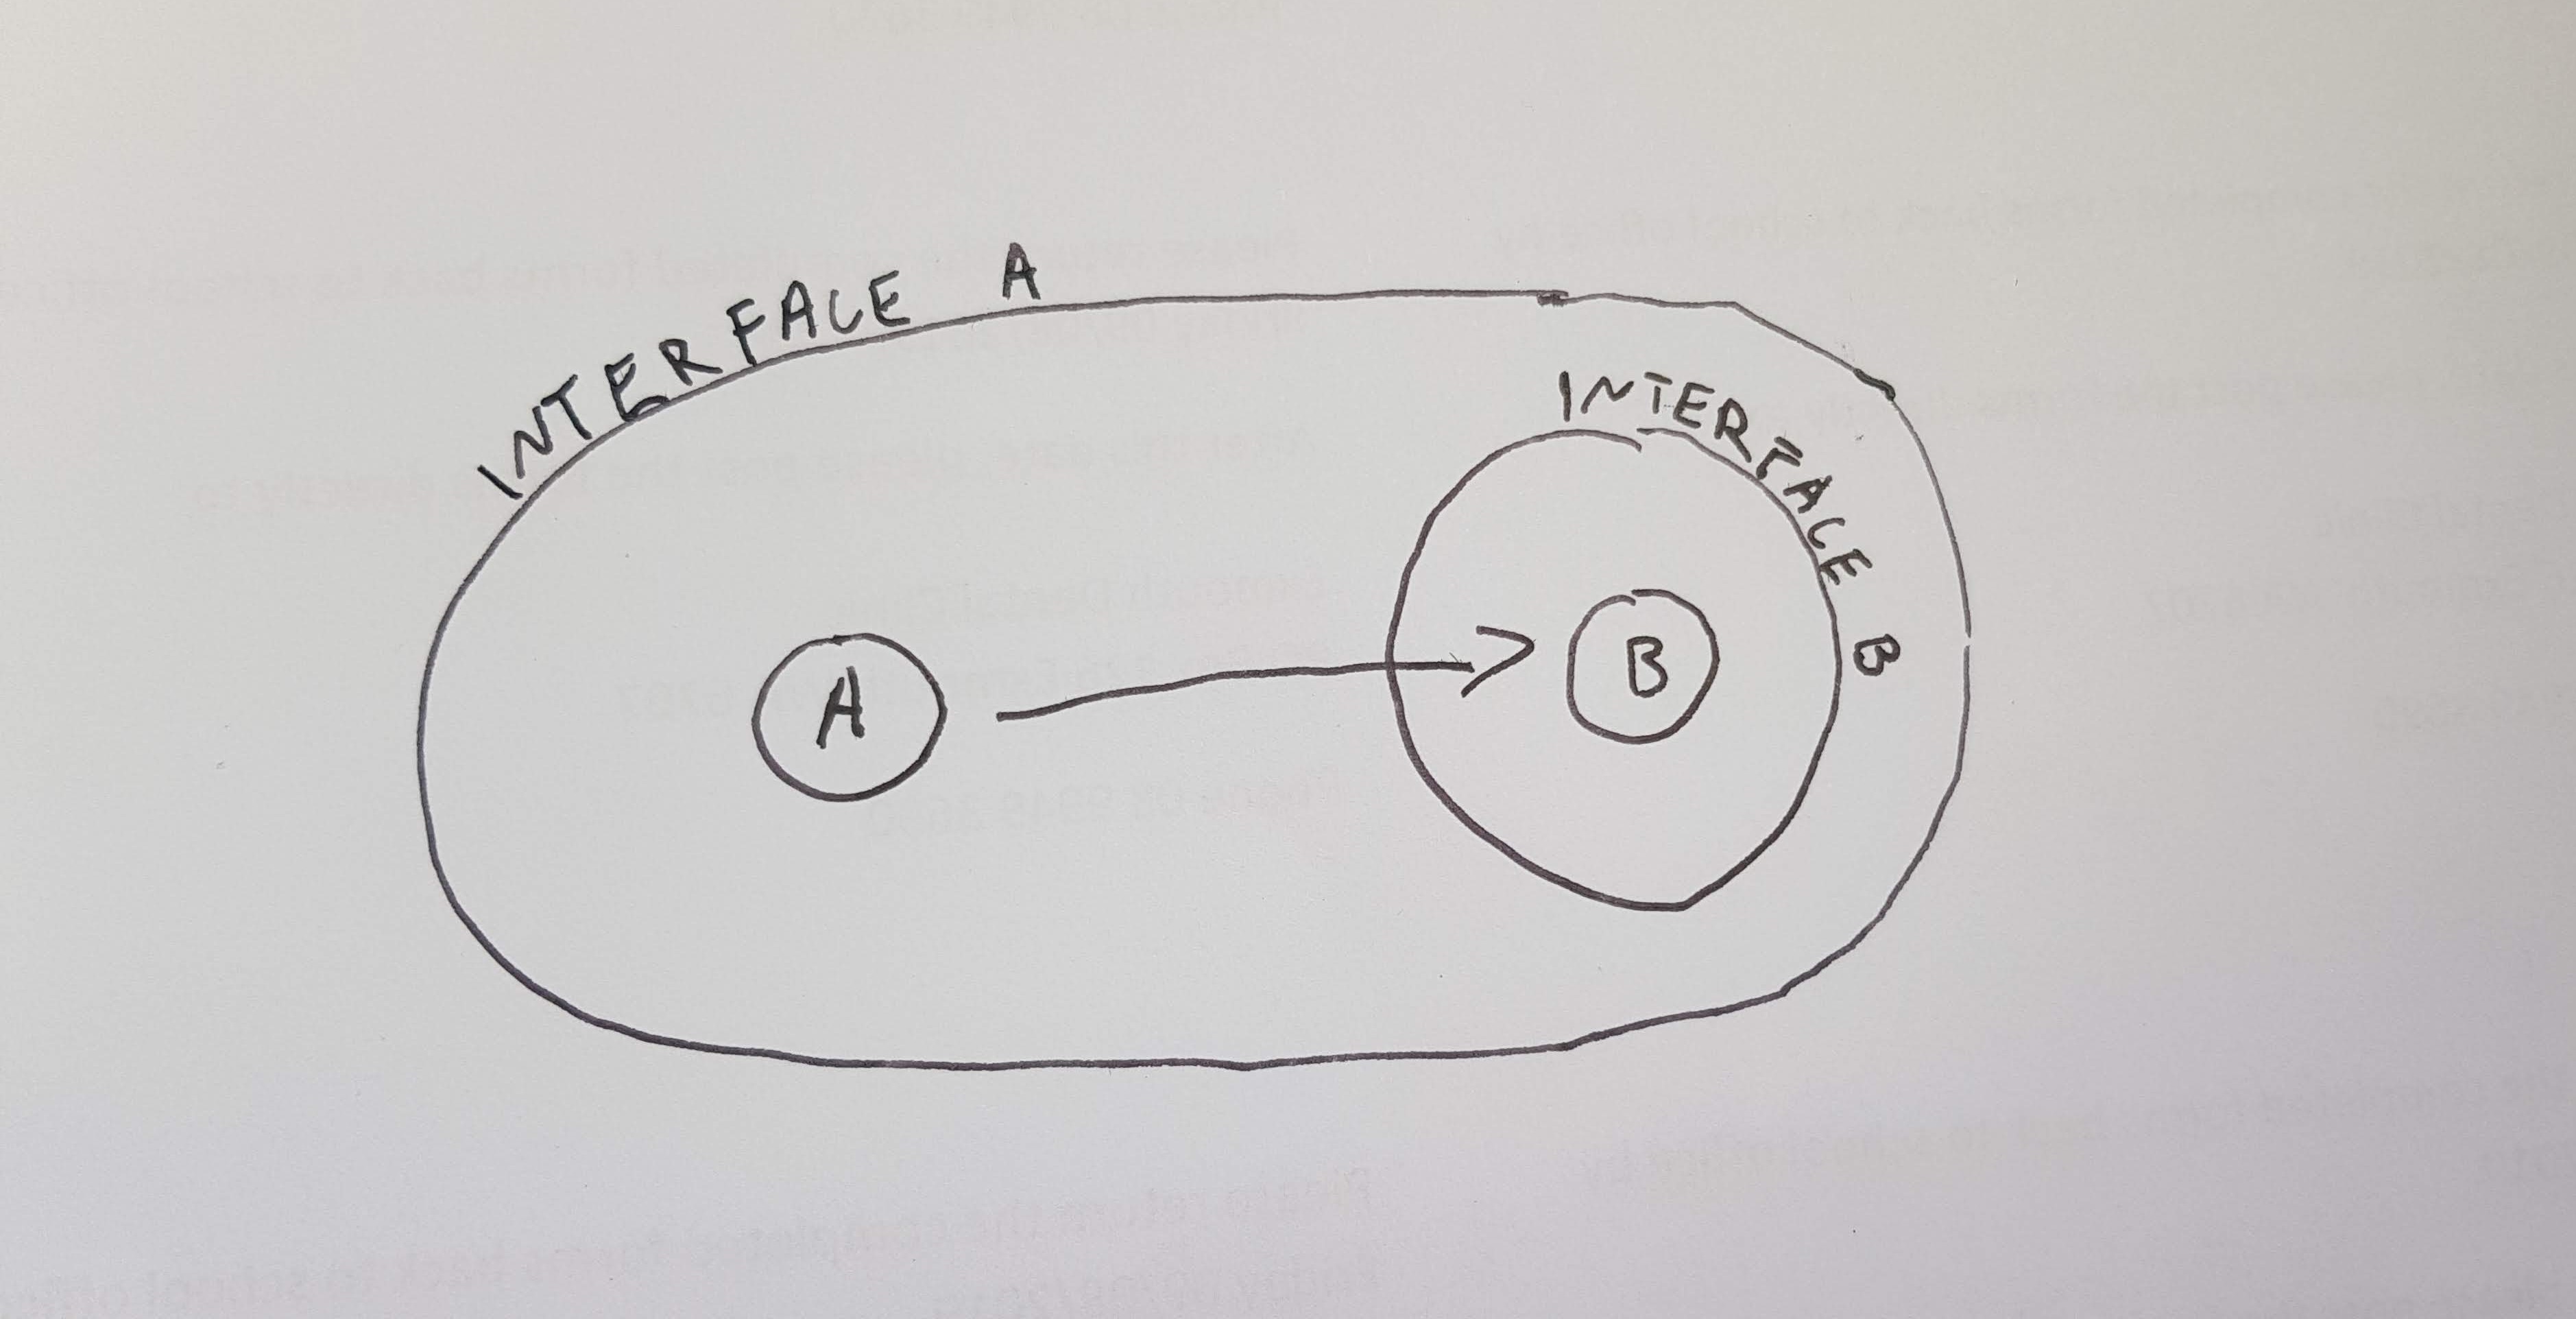 INTERFACE A
INTERFACE B
A
B